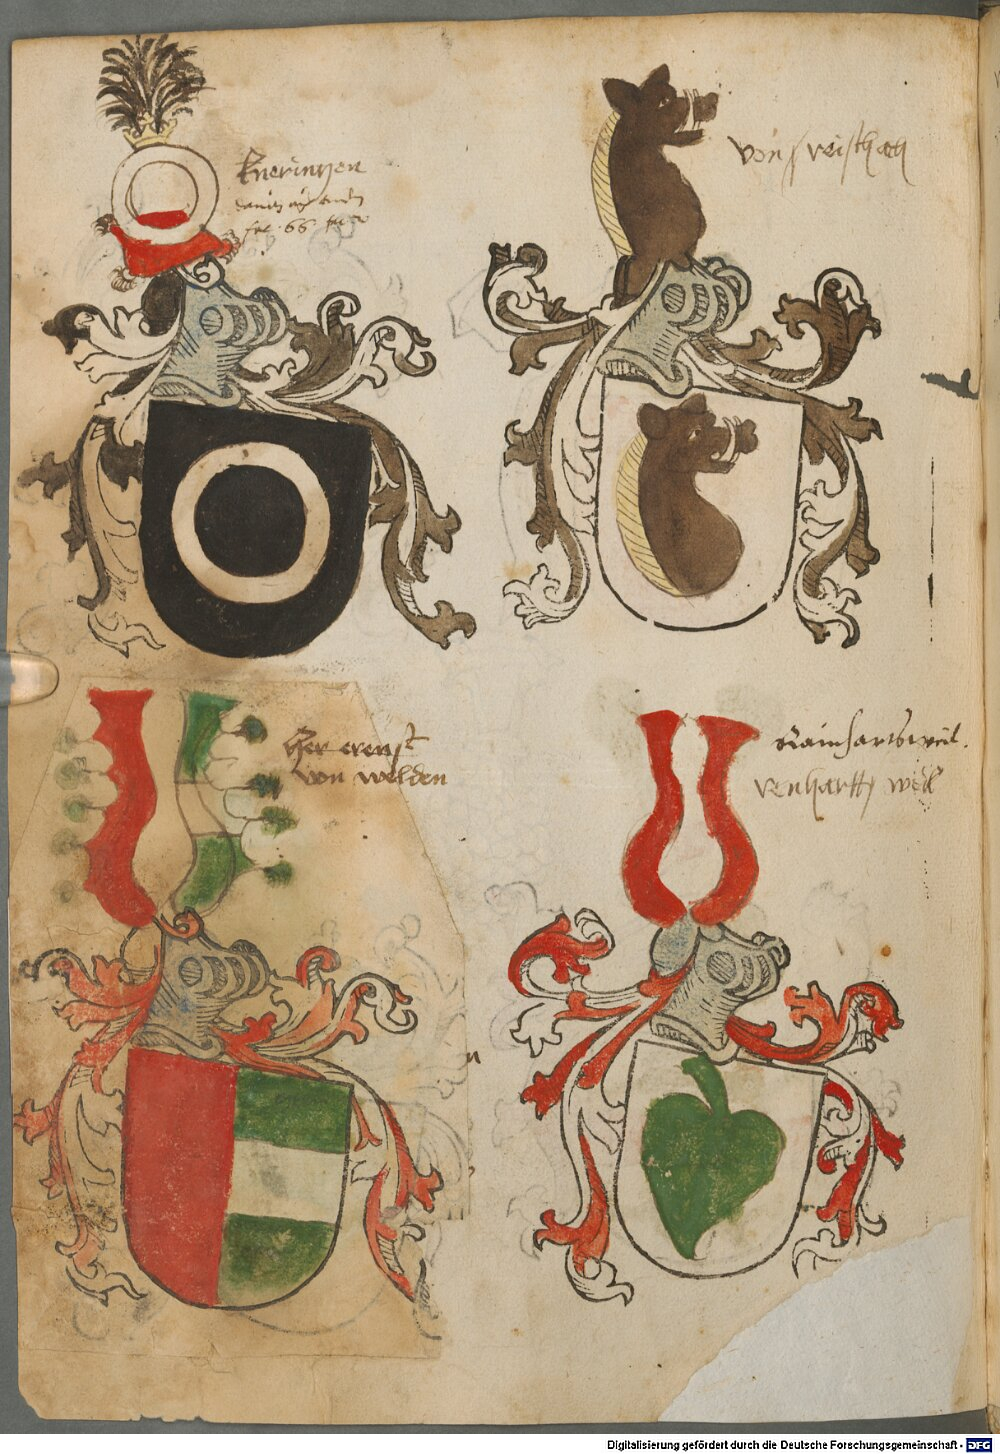 Kneringen
fol. 66
von reischach
Her ernst
von welden
Rainhartsweil.
renhartz weil
Digitalisierung gefördert durch die Deutsche Forschungsgemeinschaft - DFG